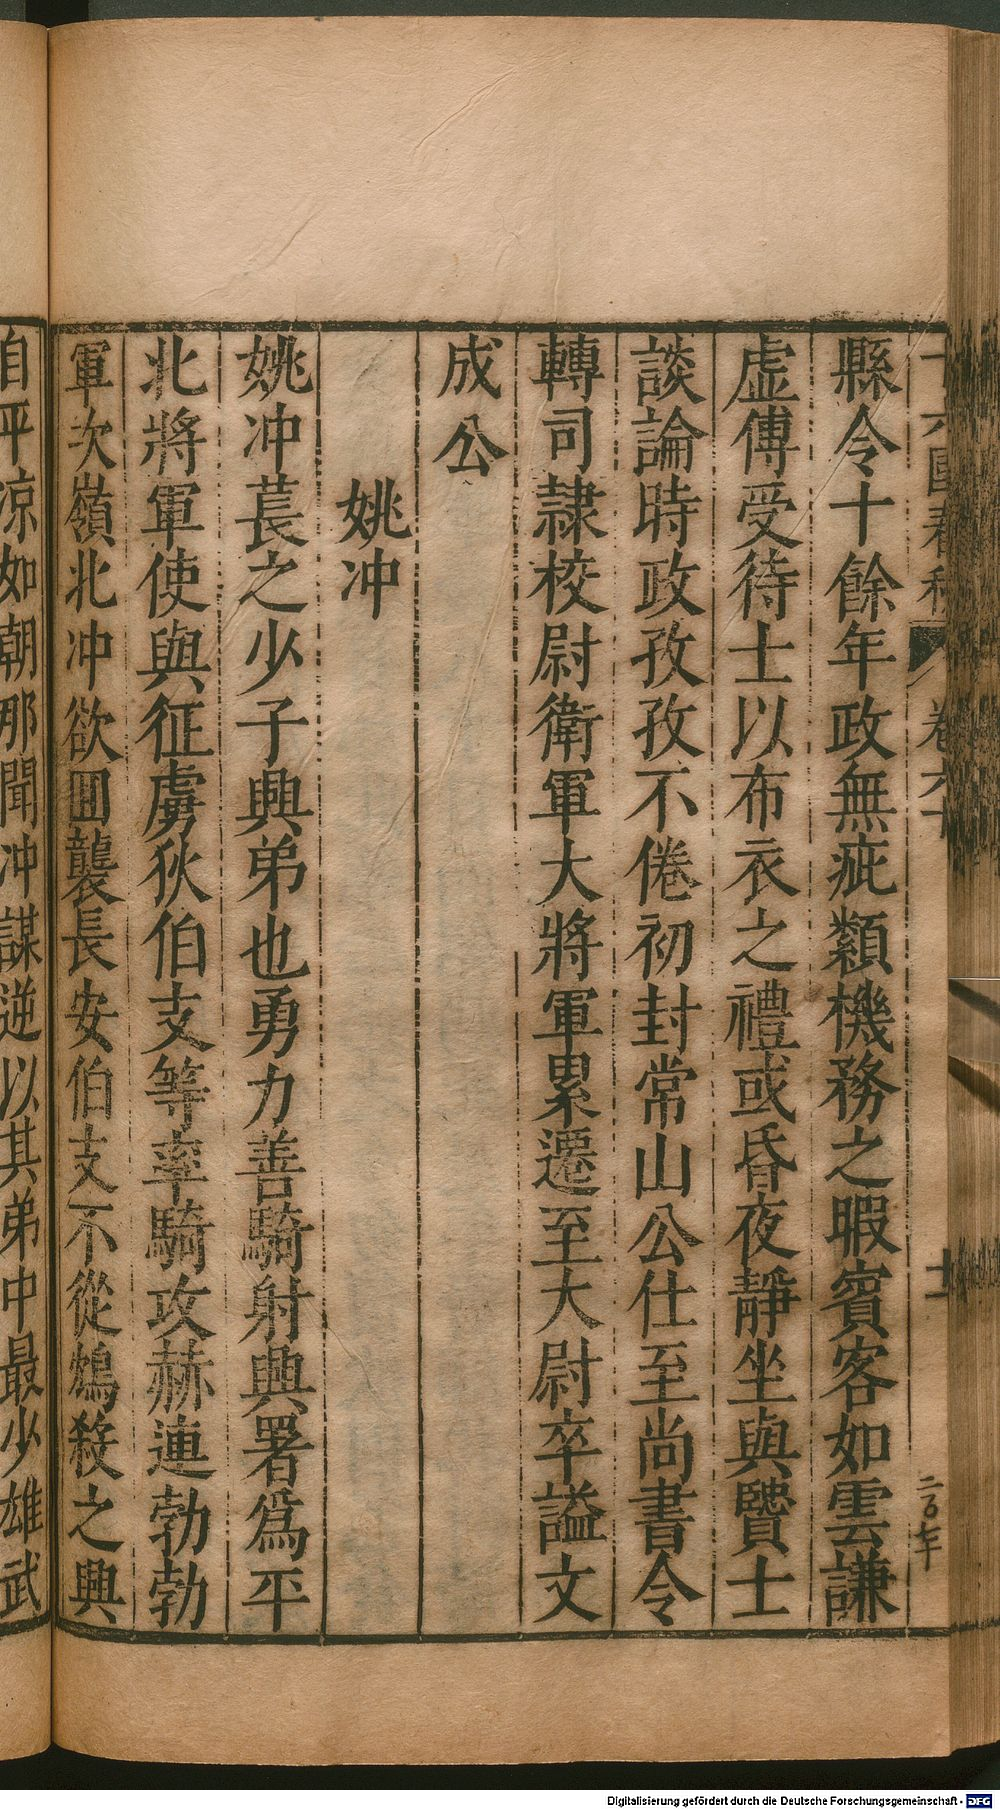 十六國春秋 卷六十 十一
二百七十
縣令十餘年政無疵纇機務之暇賓客如雲謙
虛傅受待士以布衣之禮或昏夜靜坐與賢士
談論時政孜孜不倦初封常山公仕至尚書令
轉司隷校尉衛軍大將軍累遷至大尉卒謚文
成公
姚冲
姚冲萇之少子興弟也勇力善騎射興署爲平
北將軍使與征虜狄伯支等率騎攻赫連勃勃
軍次嶺北冲欲回襲長安伯支不從鴆殺之興
自平涼如朝那聞冲謀逆以其弟中最少雄武
Digitalisierung gefördert durch die Deutsche Forschungsgemeinschaft - DFG